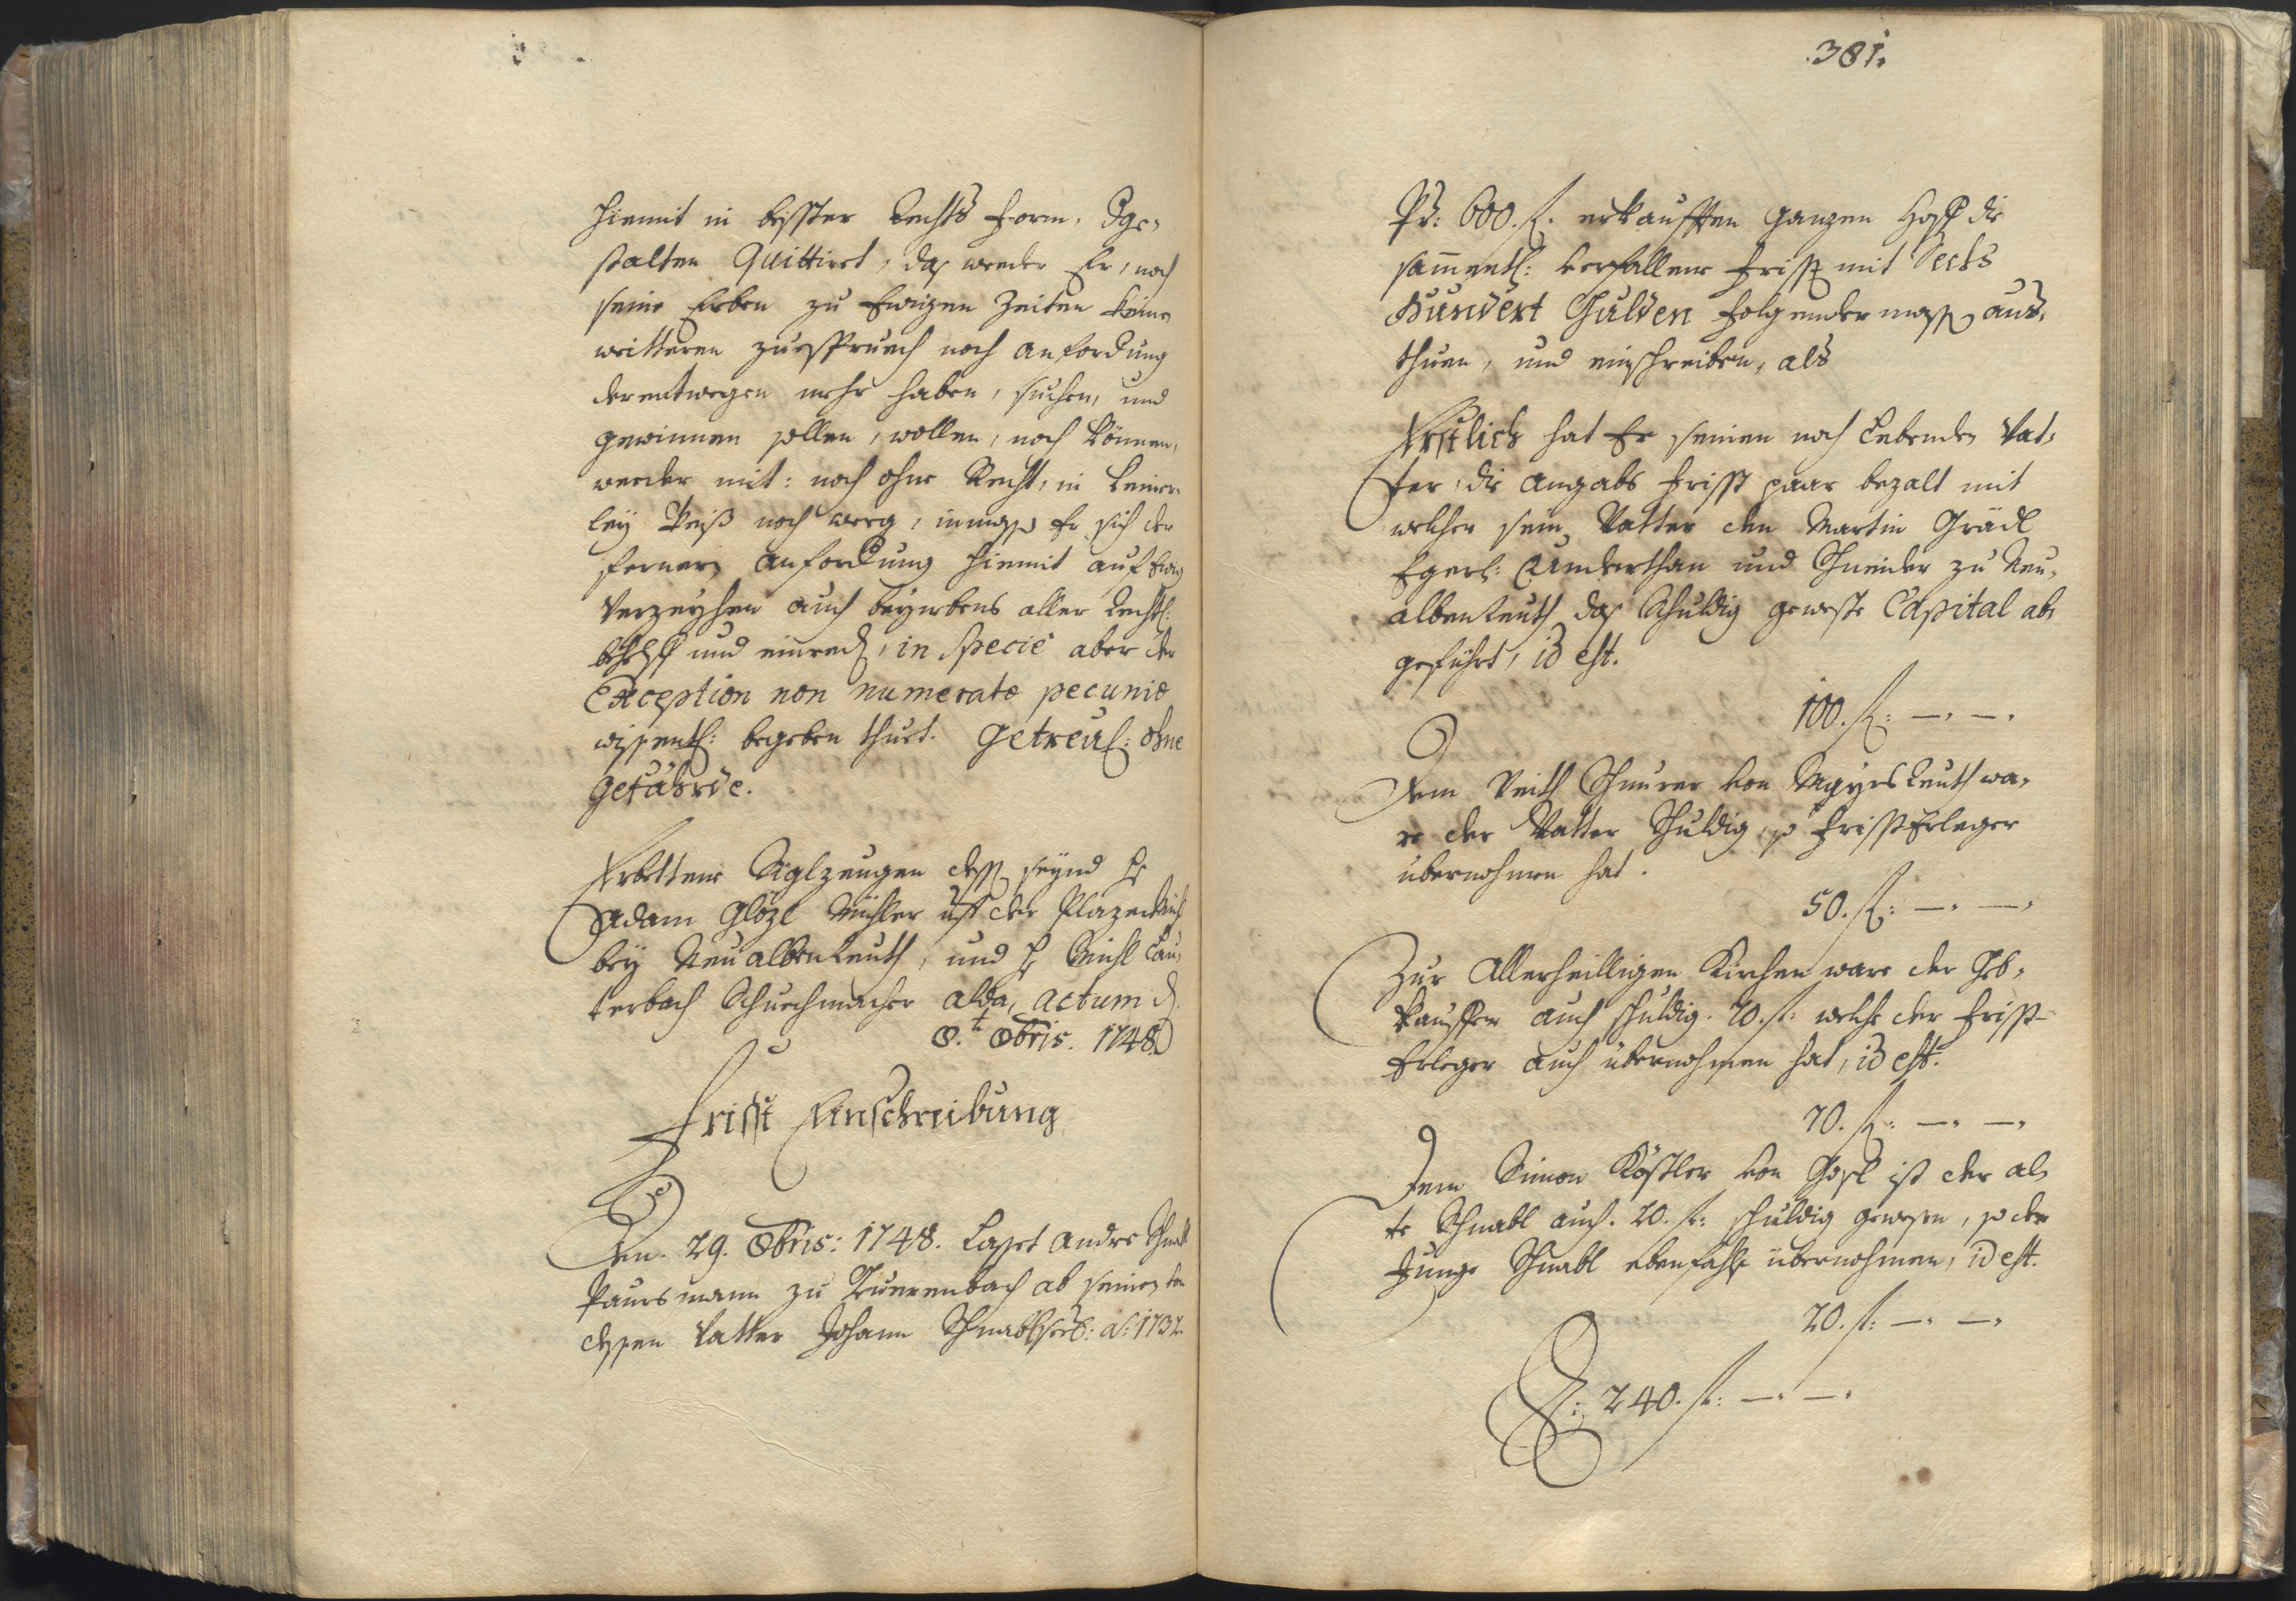 hiemit in besster Rechts Form, dge-
stalten Quittiret, daß weeder Er, noch
seine Erben zu Ewigen Zeiten keinen
weitteren zuespruch noch anfordung
derentwegen mehr haben, suchen, und
gewinnen sollen, wollen, noch können,
weeder mit: noch ohne Recht, in keiner-
ley Weiß noch weeg, inmassen Er sich der
ferneren anfordung hiemit auf Ewig
Verzeyhen auch beynebens aller Rechtl:
behelff und einreden, in specie aber der
Exception non numeratæ pecuniæ
wissentl: begeben thuet. Getreul: ohne
Gefährde.
Erbettene Siglzeugen dessen seynd H:
Adam Glözl Müller uf der Plazermühl
bey Neualbenreuth, und H: Michl Lau-
terbach Schuechmacher alda, actum d.
8.t 8bris. 1748.
Frisst Einschreibung
Den. 29. 8bris: 1748. Lasset Andre Schnabl
Paursmann zu Querenbach ab seinen von
dessen Vatter Johann Schnabl sub: a: 1732.
381.
Pr: 600. fl. erkaufften ganzen Hoff die
sammentl: verfallene Frisst mit Sechs
Hundert Gulden folgender massen aus-
thuen, und einschreiben, als
Erstlich hat Er seinen noch Lebenden Vat-
ter, die Angabs Frisst paar bezalt mit
welcher sein Vatter den Martin Grädl
Egerl: Underthan und Schneider zu Neu-
albenreuth das Schuldig geweste Capital ab-
geführt, id est.
100. fl: —. —.
Dem Veith Schnurer von Mayersreuth wa-
re der Vatter Schuldig, so Frisst Erleger
übernohmen hat.
50. fl: —. —.
Zur Allerheilligen Kirchen ware der Ver-
kauffer auch schuldig. 70. fl: welche der Frisst-
Erleger auch übernohmen hat, id est.
70. fl: —. —.
Dem Simon Köstler von Gosl ist der al-
te Schnabl auch. 20. fl: schuldig gewesen, so der
Junge Schnabl ebenfahls übernohmen, id est.
20. fl: —. —.
S: 240. fl: —. —.